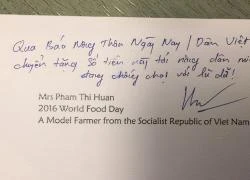 Qua Báo Nông Thôn Ngày Nay / Dân Việt
chuyển tặng số tiền này tới nông dân
đang chống chọi với lũ dữ!
Mrs Pham Thi Huan
2016 World Food Day
A Model Farmer from the Socialist Republic of Viet Nam